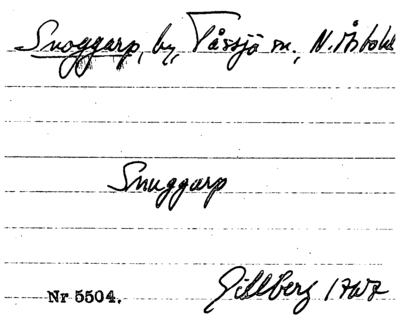 Snoggarp, by, Tåssjö sn., N. Åsbo hd
Snuggarp
Gillberg 1767
Nr 5504.